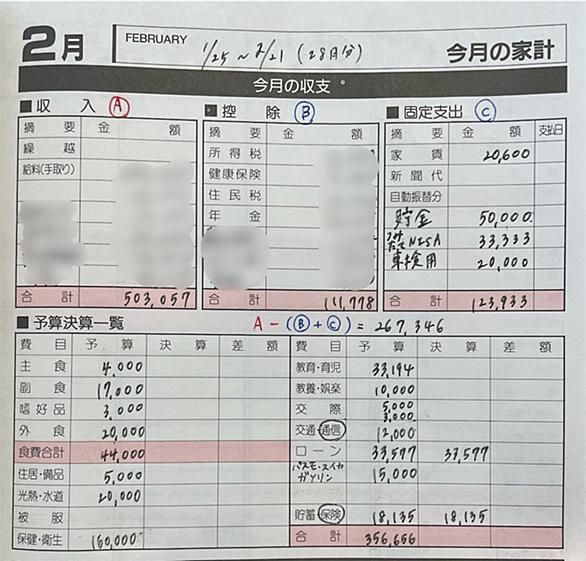 2月 FEBRUARY 1/25 ~ 2/21 (28日分) 今月の家計
今月の収支。
■収入 Ⓐ
摘要 金額
繰越
給料(手取り)
合計 503,057
■控除 Ⓑ
摘要 金額
所得税
健康保険
住民税
年金
合計 111,778
■固定支出 Ⓒ
摘要 金額 支払日
家賃 20,600
新聞代
自動振替分
貯金 50,000
つみたてNISA 33,333
車検用 20,000
合計 123,933
■予算決算一覧 A-(Ⓑ+Ⓒ)=267,346
費目 予算 決算 差額
主食 4,000
副食 17,000
嗜好品 3,000
外食 20,000
食費合計 44,000
住居・備品 5,000
光熱・水道 20,000
被服
保健・衛生 160,000
費目 予算 決算 差額
教育・育児 33,194
教養・娯楽 10,000
交際 5,000
3,000
交通・通信 12,000
ローン 33,577 33,577
パスモ・スイカ
ガソリン 15,000
貯蓄・保険 18,135 18,135
合計 356,656